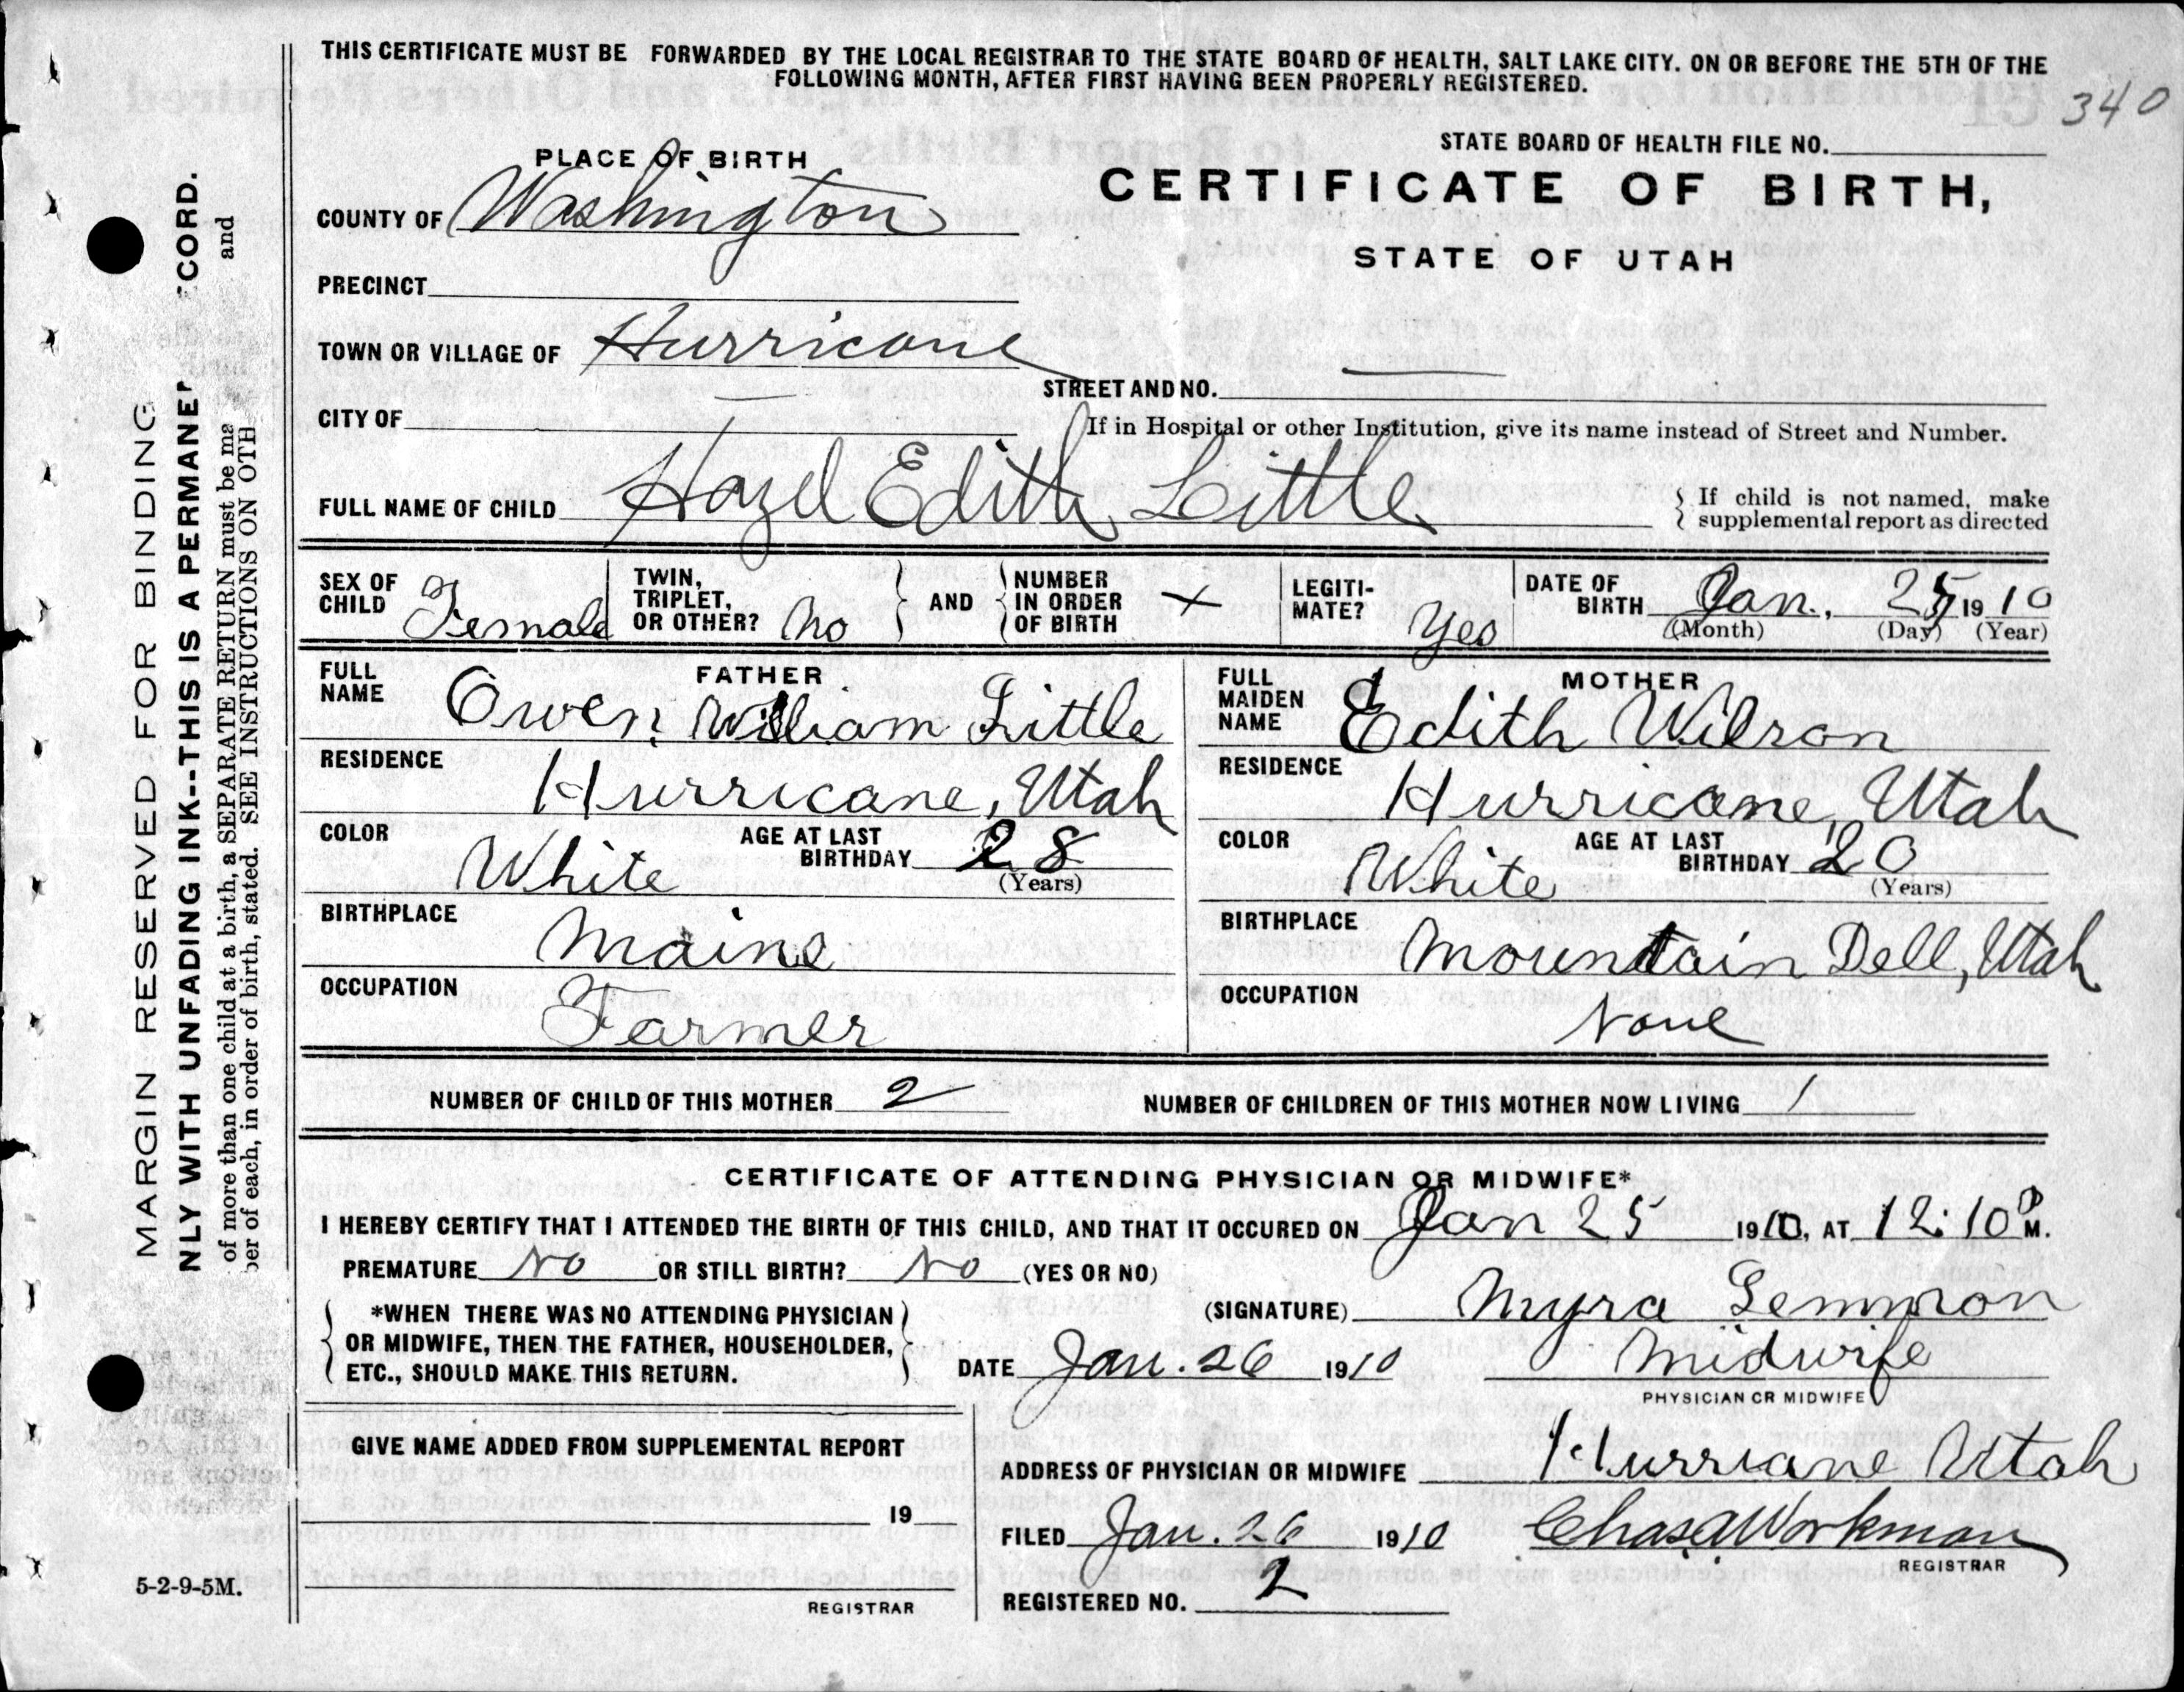 THIS CERTIFICATE MUST BE FORWARDED BY THE LOCAL REGISTRAR TO THE STATE BOARD OF HEALTH, SALT LAKE CITY. ON OR BEFORE THE 5TH OF THE
FOLLOWING MONTH, AFTER FIRST HAVING BEEN PROPERLY REGISTERED.
340
PLACE OF BIRTH
STATE BOARD OF HEALTH FILE NO.
COUNTY OF Washington
CERTIFICATE OF BIRTH,
STATE OF UTAH
PRECINCT
TOWN OR VILLAGE OF Hurricane
STREET AND NO. —
CITY OF —
If in Hospital or other Institution, give its name instead of Street and Number.
FULL NAME OF CHILD Hazel Edith Little
If child is not named, make
supplemental report as directed
SEX OF CHILD Female
TWIN, TRIPLET, OR OTHER? No
AND
NUMBER IN ORDER OF BIRTH +
LEGITI-MATE? Yes
DATE OF BIRTH Jan., 25, 1910
(Month) (Day) (Year)
FATHER
FULL NAME Owen William Little
RESIDENCE Hurricane, Utah
COLOR White
AGE AT LAST BIRTHDAY 28
(Years)
BIRTHPLACE Maine
OCCUPATION Farmer
MOTHER
FULL MAIDEN NAME Edith Wilson
RESIDENCE Hurricane, Utah
COLOR White
AGE AT LAST BIRTHDAY 20
(Years)
BIRTHPLACE Mountain Dell, Utah
OCCUPATION None
NUMBER OF CHILD OF THIS MOTHER 2
NUMBER OF CHILDREN OF THIS MOTHER NOW LIVING 1
CERTIFICATE OF ATTENDING PHYSICIAN OR MIDWIFE*
I HEREBY CERTIFY THAT I ATTENDED THE BIRTH OF THIS CHILD, AND THAT IT OCCURED ON Jan 25 1910, AT 12:10 P M.
PREMATURE No OR STILL BIRTH? No (YES OR NO)
*WHEN THERE WAS NO ATTENDING PHYSICIAN
OR MIDWIFE, THEN THE FATHER, HOUSEHOLDER,
ETC., SHOULD MAKE THIS RETURN.
(SIGNATURE) Myra Lemmon
DATE Jan. 26 1910
Midwife
PHYSICIAN OR MIDWIFE
GIVE NAME ADDED FROM SUPPLEMENTAL REPORT
19
REGISTRAR
ADDRESS OF PHYSICIAN OR MIDWIFE Hurriane Utah
FILED Jan. 26 1910 Chas. A Workman
REGISTRAR
REGISTERED NO. 2
5-2-9-5M.
MARGIN RESERVED FOR BINDING
NLY WITH UNFADING INK--THIS IS A PERMANE CORD.
of more than one child at a birth, a SEPARATE RETURN must be ma and
ber of each, in order of birth, stated. SEE INSTRUCTIONS ON OTH